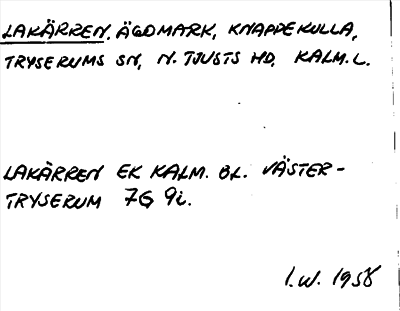 LAKÄRREN, ÄGOMARK, KNAPPEKULLA,
TRYSERUMS SN, N. TJUSTS HD, KALM. L.
LAKÄRREN EK KALM. BL. VÄSTER-
TRYSERUM 7G 9i.
I.W. 1958